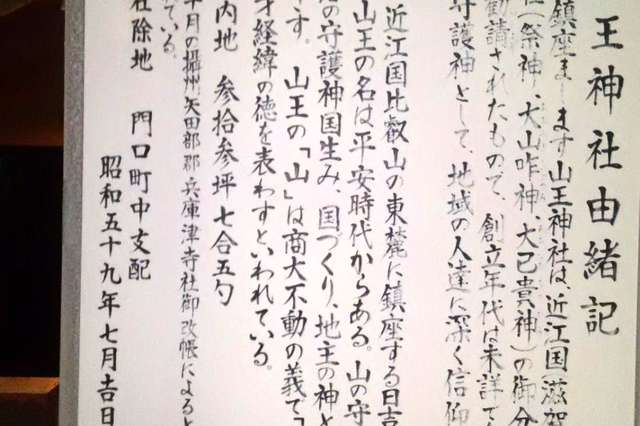 王神社由緒記
鎮座まします山王神社は、近江国滋賀
(祭神、大山咋神、大己貴神)の御分
勧請されたもので、創立年代は未詳で
守護神として、地域の人達に深く信仰
近江国比叡山の東麓に鎮座する日吉
山王の名は平安時代からある。山の守
の守護神国生み、国づくり、地主の神と
す。山王の「山」は商大不動の義で「
才経緯の徳を表わすといわれている。
内地 参拾参坪七合五勺
年月の摂州矢田部郡兵庫津寺社御改帳によると
ている。
社除地 門口町中支配
昭和五十九年七月吉日